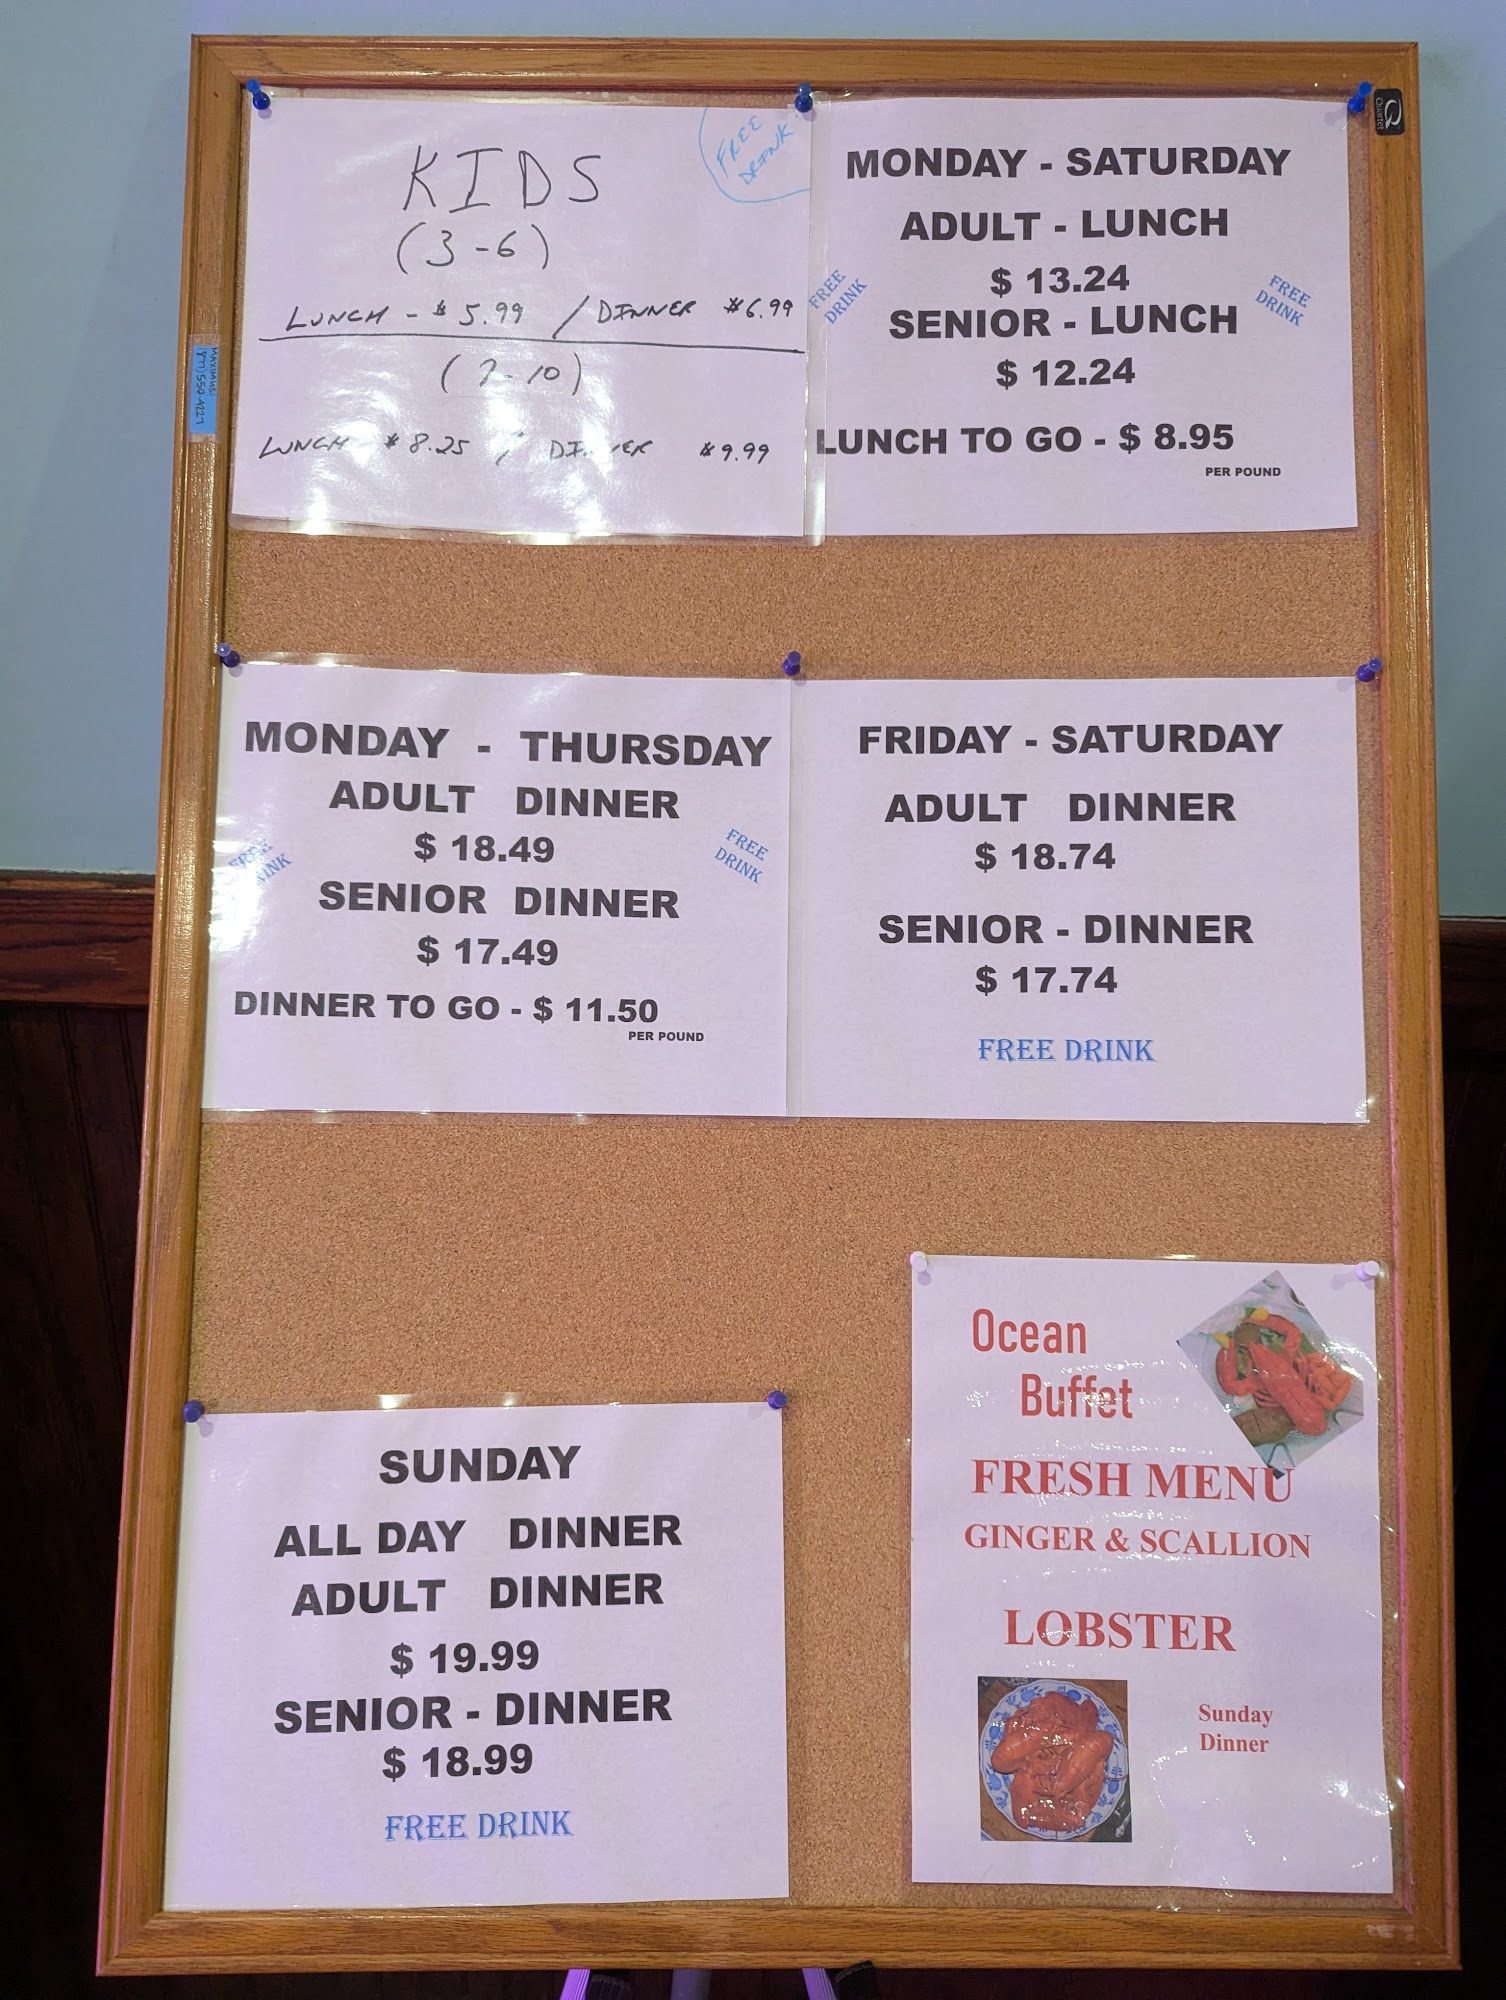 KIDS
(3-6)
LUNCH - $5.99 / DINNER $6.99
(7-10)
LUNCH $8.25 / DINNER $9.99
FREE
DRINK
MONDAY - SATURDAY
ADULT - LUNCH
$ 13.24
SENIOR - LUNCH
$ 12.24
LUNCH TO GO - $ 8.95
PER POUND
FREE
DRINK
FREE
DRINK
Quartet
MAXIMUS:
(877) 550-4227
MONDAY - THURSDAY
ADULT DINNER
$ 18.49
SENIOR DINNER
$ 17.49
DINNER TO GO - $ 11.50
PER POUND
FREE
DRINK
FREE
DRINK
FRIDAY - SATURDAY
ADULT DINNER
$ 18.74
SENIOR - DINNER
$ 17.74
FREE DRINK
SUNDAY
ALL DAY DINNER
ADULT DINNER
$ 19.99
SENIOR - DINNER
$ 18.99
FREE DRINK
Ocean
Buffet
FRESH MENU
GINGER & SCALLION
LOBSTER
Sunday
Dinner